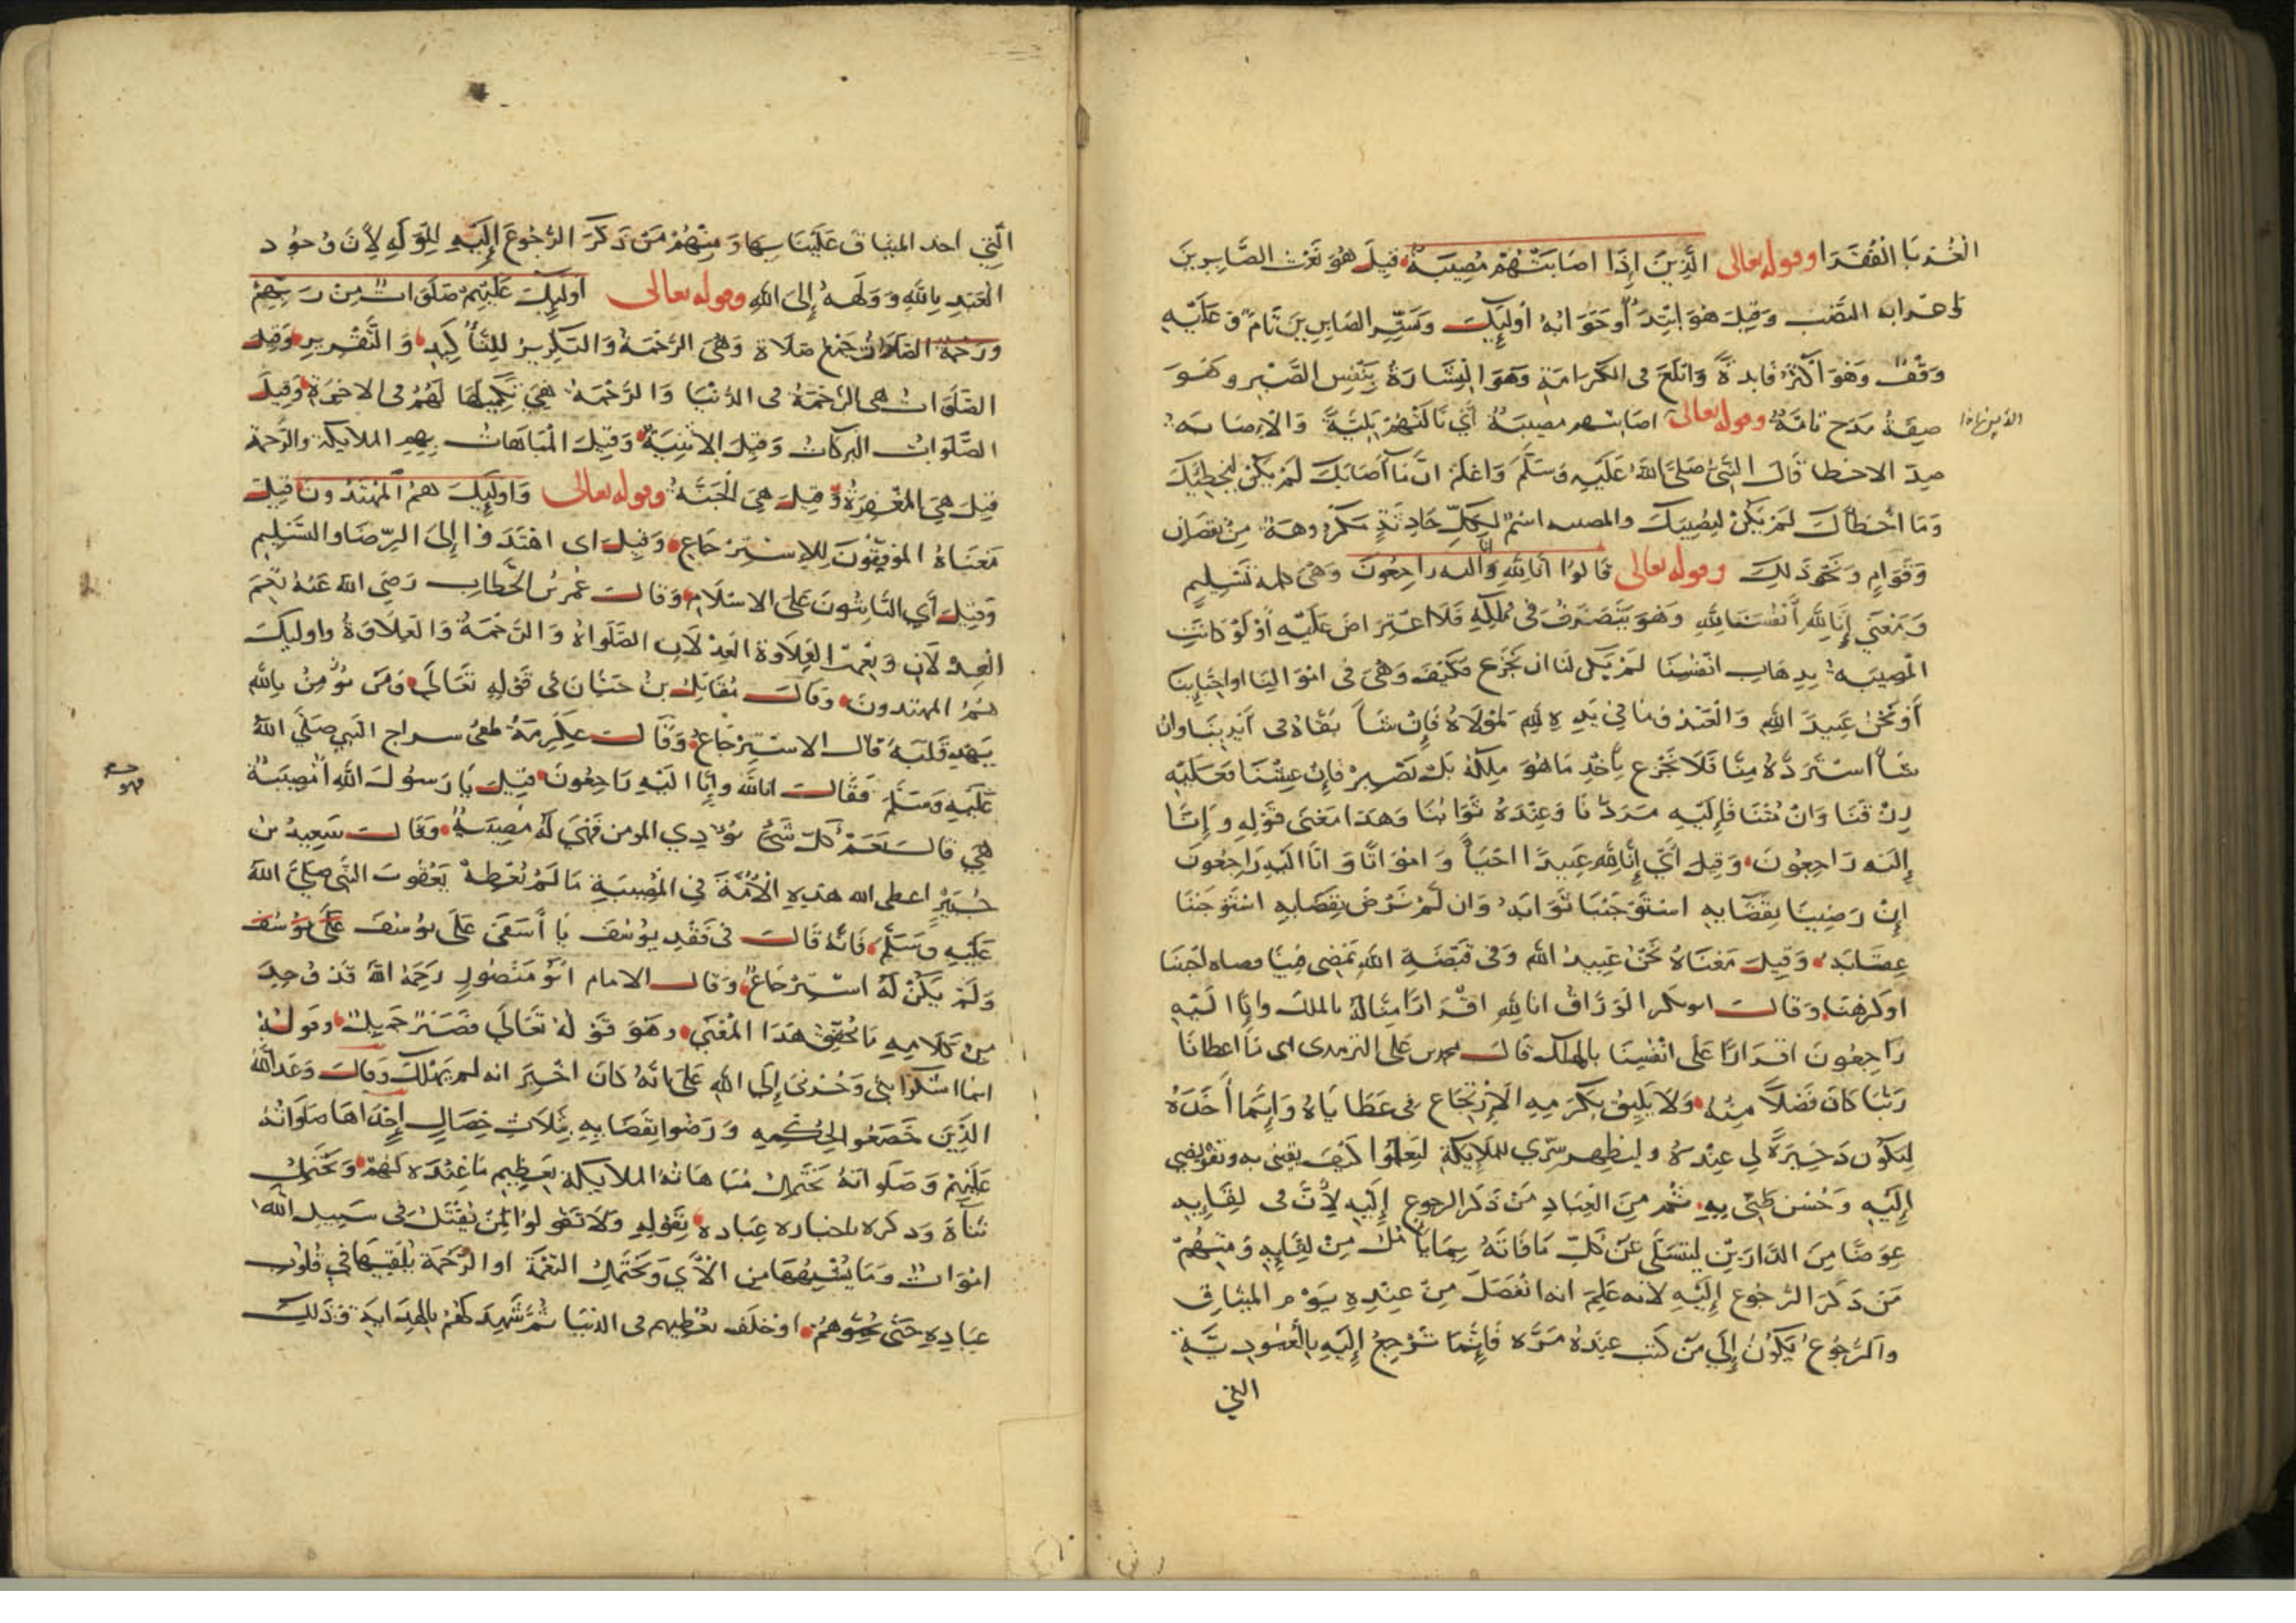 الْغُرَبَا الْفُقَرَا وقوله تعالى الَّذِينَ إِذَا اصَابَتْهُمْ مُصِيبَةٌ قيلَ هُوَ نَعْت الصَّابِرِينَ
واعرابه النصْب وَقيلَ هُوَ ابْتِدَاءٌ وَجَوَابُهُ أُولَيِكَ وَبَشِّرِ الصَابِرِينَ تَامٌّ وَعَلَيْهِ
وَقْفٌ وَهُوَ أَكْثَرُ فَايدةً وَابْلَغ فى الكَرَامَةِ وَهُوَ الْبِشَارَةُ بِنَفْسِ الصَّبْرِ وَهُوَ
صِفَةُ مَدْحٍ تَامَّةٌ وقوله تعالى اصَابتهم مصِيبَةٌ أَيْ نَالَتْهُمْ بَلِيَّةٌ وَالْاِصَابَةُ
ضِدّ الاخطا قَالَ النَّبيُّ صَلَّى اللهُ عَلَيْهِ وَسَلَّمَ وَاعْلَمْ انَّ مَا أَصَابَكَ لَمْ يَكُنْ لِيُخْطِئَكَ
وَمَا أخْطَأَكَ لَمْ يَكُنْ لِيُصِيبَكَ والمصيبه اسْمٌ لِكلِّ حَادِثَةٍ مَكْرُوهَةٍ مِنْ نقصَانِ
وَفَوَاتٍ وَنَحْوِ ذَلِكَ وقوله تعالى قَالُوا انا لِلَّهِ وَإنا اليه راجِعُونَ وَهَى كلمة تَسْلِيمٍ
وَمَعْنَى إِنَّا لِلَّهِ أَنْفُسُنَا لِلَّهِ وَهُوَ يَتَصَرَّفُ فى مُلْكِهِ فَلَا اعْتِرَاضَ عَلَيْهِ أوْ لَوْ كَانَتِ
الْمُصِيبَه بِذهَابِ انْفُسِنَا لَمْ يَكُن لَنَا ان نَجْزَع فَكَيْفَ وَهْىَ فى امْوَالِنَا او احْبَابِنَا
أَوْ نَحْنُ عَبِيدُ اللهِ وَالْعَبْدُ وَمَا فى يَدِهِ لِلهِ لمَوْلَاهُ فَإِنْ شَاءَ بَقَّاهُ فى أَيْدِينَا وان
شَاءَ اسْتَرَدَّهُ مِنَّا فَلَا نَجْزَع بأَخْذِ مَا هُوَ مِلْكُهُ بَلْ نَصْبِرُ فَإِنْ عِشْنَا فَعَلَيْهِ
رِزْقنَا وَانْ مُتْنَا فَإِلَيْهِ مَرَدُّنَا وَعِنْدَهُ ثَوَابُنَا وَهَذَا مَعْنَى قَوْلِهِ وَإِنَّا
إِلَيْهِ رَاجِعُونَ وَقِيلَ أَيْ إِنَّا لِلَّهِ عَبِيدًا احْيَاءً وَامْوَاتًا وَانَّا الَيْهِ رَاجِعُونَ
إِنْ رَضِينَا بِقَضَايِهِ اسْتَوْجَبْنَا ثَوَابَهُ وَان لَمْ نَرْضَ بِقَضَايِهِ اسْتَوْجَبْنَا
عِقَابَهُ وَقِيلَ مَعْنَاهُ نَحْنُ عَبِيدُ الله وَفى قَبْضَةِ اللهِ يَمْضى فِينَا قضاه احْبَبْنَا
او كَرِهْنَا وَقَالَ ابو بكر الْوَرَّاقُ انا لِلهِ اقْرَارًا مِنَّا لَهُ بالملك وانا الَيْهِ
رَاجِعُونَ اقرَارًا عَلَى انْفُسِنَا بالهلك قَالَ محمد بن على الترمدى اى مَا اعطانَا
رَبُّنَا كَانَ فَضْلًا مِنْهُ وَلَا يَلِيقُ بِكَرَمِهِ الْاِرْتِجَاع فِى عَطَايَاهُ وَإِنَّمَا أَخَذَهُ
لِيَكُونَ ذَخِيرَةً لِى عِنْدَهُ وليظهر سِرِّي للمَلايِكَةِ لِيَعْلَمُوا كَيْفَ يقينى به وتَفْويضى
إِلَيْهِ وَحُسْن ظَنّى بِهِ ثُم مِنَ الْعِبَادِ مَنْ ذَكَرَ الرجوع إِلَيْهِ لِأَنَّ فى لِقَايِهِ
عِوَضًا مِنَ الدَّارَيْنِ ليَتَسَلَّى عَنْ كُلِّ مَا فَاتَهُ بِمَا يَأْمُلُ مِنْ لِقَايِهِ وَمِنْهُمْ
مَنْ ذَكَرَ الرُّجُوعَ إِلَيْهِ لانه عَلِمَ انه انْفَصَلَ مِنْ عِنْدِهِ يَوْم الميثَاقِ
والرُّجُوعُ يَكُونُ إِلَى مَنْ كُنْت عِنْدَهُ مَرَّه فَإِنَّمَا نَرْجِعُ إِلَيْهِ بِالْعُبُودِيَّةِ
التى
الذين اذا
الَّتِى اخذ الميثاقَ عَلَيْنَا بِهَا وَمِنْهُمْ مَنْ ذَكَرَ الرُّجُوعَ إِلَيْهِ لِلْوَلَهِ لأنَّ وُجُود
الْعَبْدِ بِاللَّهِ وَوَلَهَهُ إِلَى اللَّهِ وقوله تعالى اوليكَ عَلَيْهِمْ صَلَوَاتٌ مِنْ رَبِّهِمْ
وَرَحْمَةٌ الصَّلَوَاتُ جَمْعُ صَلَاةٍ وَهْىَ الرَّحْمَةُ وَالتكْرِيرُ لِلتَّأْكِيدِ وَالتَّقْرِيرِ وَقِيلَ
الصَّلَوَاتُ هى الرَّحْمَةُ فى الدُّنْيَا وَالرَّحْمَةُ هِىَ تَكْمِيلُهَا لَهُمْ فى الاخِرَةِ وَقِيلَ
الصَّلَوَاتُ الْبَرَكَاتُ وَقِيلَ الاثْنِيَةُ وَقِيلَ الْمُبَاهَاتُ بِهِم الملايكة والرَّحمة
قِيلَ هِىَ الْمَغْفِرَةُ وَقِيلَ هِىَ الْجَنَّةُ وقوله تعالى وَاوليِكَ هُمُ الْمُهْتَدُونَ قِيلَ
مَعْنَاهُ الْمُوَفَّقُونَ لِلِاسْتِرْجَاعِ وَقِيلَ اى اهْتَدَوْا إِلَى الرِّضَا وَالتَّسْلِيمِ
وَقِيلَ أَيِ الثَّابِتُونَ عَلَى الاسْلَامِ وَقَالَ عُمَرُ بْنُ الخَطَّابِ رَضِيَ الله عَنْهُ نِعْمَ
الْعِدْلَانِ وَنِعْمَتِ الْعِلَاوَةُ الْعِدْلَانِ الصَّلَوَاةُ وَالرَّحْمَةُ وَالْعِلَاوَةُ واوليكَ
هُمُ المهتدونَ وَقَالَ مُقَاتِلُ بْنُ حَيَّانَ فى قَوْلِهِ تَعَالَى وَمَنْ يُؤْمِنْ بِاللَّهِ
يَهْدِ قَلْبَهُ قَالَ الاسْتِرْجَاعُ وَقَالَ عِكْرِمَةُ طفئ سراج النَّبِي صَلَّى اللهُ
عَلَيْهِ وَسَلَّمَ فَقَالَ انا للَّهِ وإِنَّا الَيْهِ رَاجِعُونَ قِيلَ يَا رَسُولَ اللهِ أمُصِيبَةٌ
هِيَ قالَ نَعَمْ كُلُّ شَيْءٍ يُؤْذِي المومن فَهْىَ لَهُ مُصِيبَةٌ وَقَالَ سَعِيدُ بْنُ
جُبَيْرٍ اعطى الله هَذِهِ الْأُمَّةَ فِى الْمُصِيبَةِ مَا لَمْ يُعْطِهِ يَعْقُوبَ النَّبى صلَّى اللهُ
عَلَيْهِ وَسَلَّمَ فَانَّهُ قَالَ فى فَقْدِ يُوسُفَ يَا أَسَفَى عَلَى يُوسُفَ
وَلَمْ يَكُنْ لَهُ اسْتِرْجَاعٌ وَقَالَ الامام ابُو مَنْصُورٍ رَحِمَهُ اللهُ قَدْ وُجِدَ
مِنْ كَلَامِهِ مَا يُحَقِّقُ هَذَا الْمَعْنَى وهُوَ قَوْلُهُ تَعَالَى فَصَبْرٌ جَمِيلٌ وقَولُهُ
انما اشْكُوا بَثِّى وَحُزْنِى إِلَى اللهِ عَلَى انَّهُ كَانَ اخْبِرَ انه لم يَهْلَكْ وَقَالَ وَعَدَ اللَّهُ
الَّذِينَ خَضَعُوا لِحُكْمِهِ وَرَضُوا بِقَضَايِهِ بِثَلَاثِ خِصَالٍ إِحْدَاهَا صَلَوَاتُهُ
عَلَيْهِمْ وَصَلَوَاتُهُ يَحْتَمِلُ مُبَاهَاتُهُ الملايكةَ بِعَظِيمِ مَا عِنْدَهُ لَهُمْ وَيَحْتَمِلُ
ثَنَاهُ وَذكره باخباره عِبَاده بِقَوْلِهِ وَلَا تَقُولُوا لِمَنْ يُقْتَلُ فى سَبِيلِ اللَّهِ
امْوَاتٌ وَمَا يُشْبِهُهَا مِن الْآي وَيَحْتَمِلُ النِّعْمَة او الرَّحْمَة يُلْقِيهَا فِي قُلُوبِ
عِبَادِهِ حَتَّى يُحِبُّوهُمْ او خَلَفَ يُعْطِيهم فى الدنيَا ثُمَّ شَهِدَ لَهُمْ بِالْهِدَايَةِ وَذَلِكَ